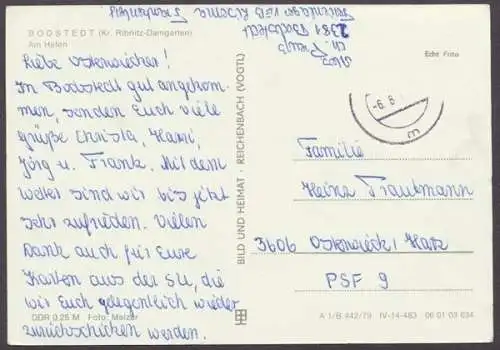 BODSTEDT (Kr. Ribnitz-Damgarten)
Am Hafen
Liebe Osterwiecker!
In Bodstedt gut angekom-
men, senden Euch viele
Grüße Christa, Hansi,
Jörg u. Frank. Mit dem
Wetter sind wir bis jetzt
sehr zufrieden. Vielen
Dank auch für Eure
Karten aus der SU, die
wir Euch gelegentlich wieder
zurückschicken werden.
DDR 0,25 M Foto: Melzer
BILD UND HEIMAT · REICHENBACH (VOGTL)
2381 Bodstedt
Ferienlager VEB
Echt Foto
-6. 8.
m
Familie
Heinz Trautmann
3606 Osterwieck / Harz
PSF 9
A 1/B 442/79 IV-14-483 06 01 03 634